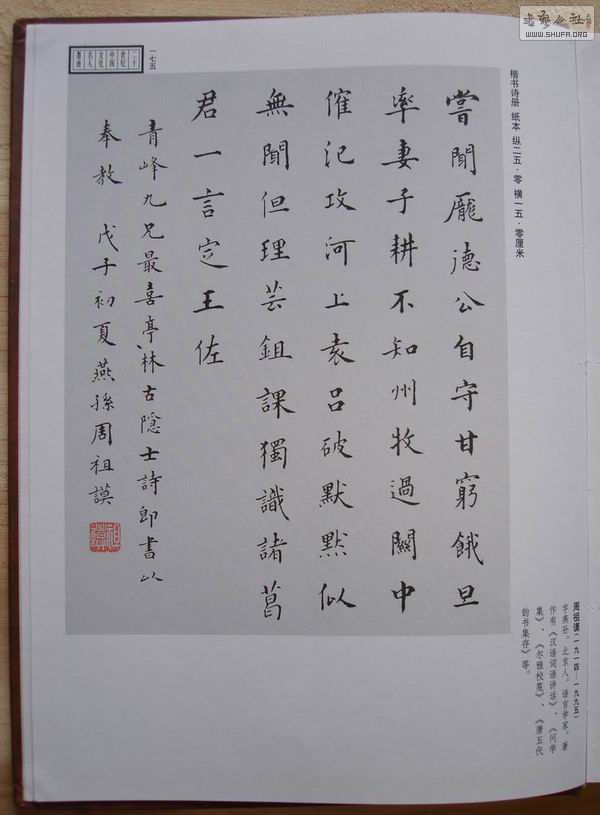 书艺公社
WWW.SHUFA.ORG
一七五
二十世纪中国文化名人墨迹
楷书诗册 纸本 纵二五·零 横一五·零厘米
嘗聞龐德公自守甘窮餓旦
率妻子耕不知州牧過關中
傕汜攻河上袁呂破默默似
無聞但理芸鉏課獨識諸葛
君一言定王佐
青峰九兄最喜亭林古隱士詩即書以
奉教 戊子初夏燕孫周祖謨
周祖谟(一九一四—一九九五)
字燕孙。北京人。语言学家。著
作有《汉语词语讲话》、《问学
集》、《尔雅校笺》、《唐五代
韵书集存》等。